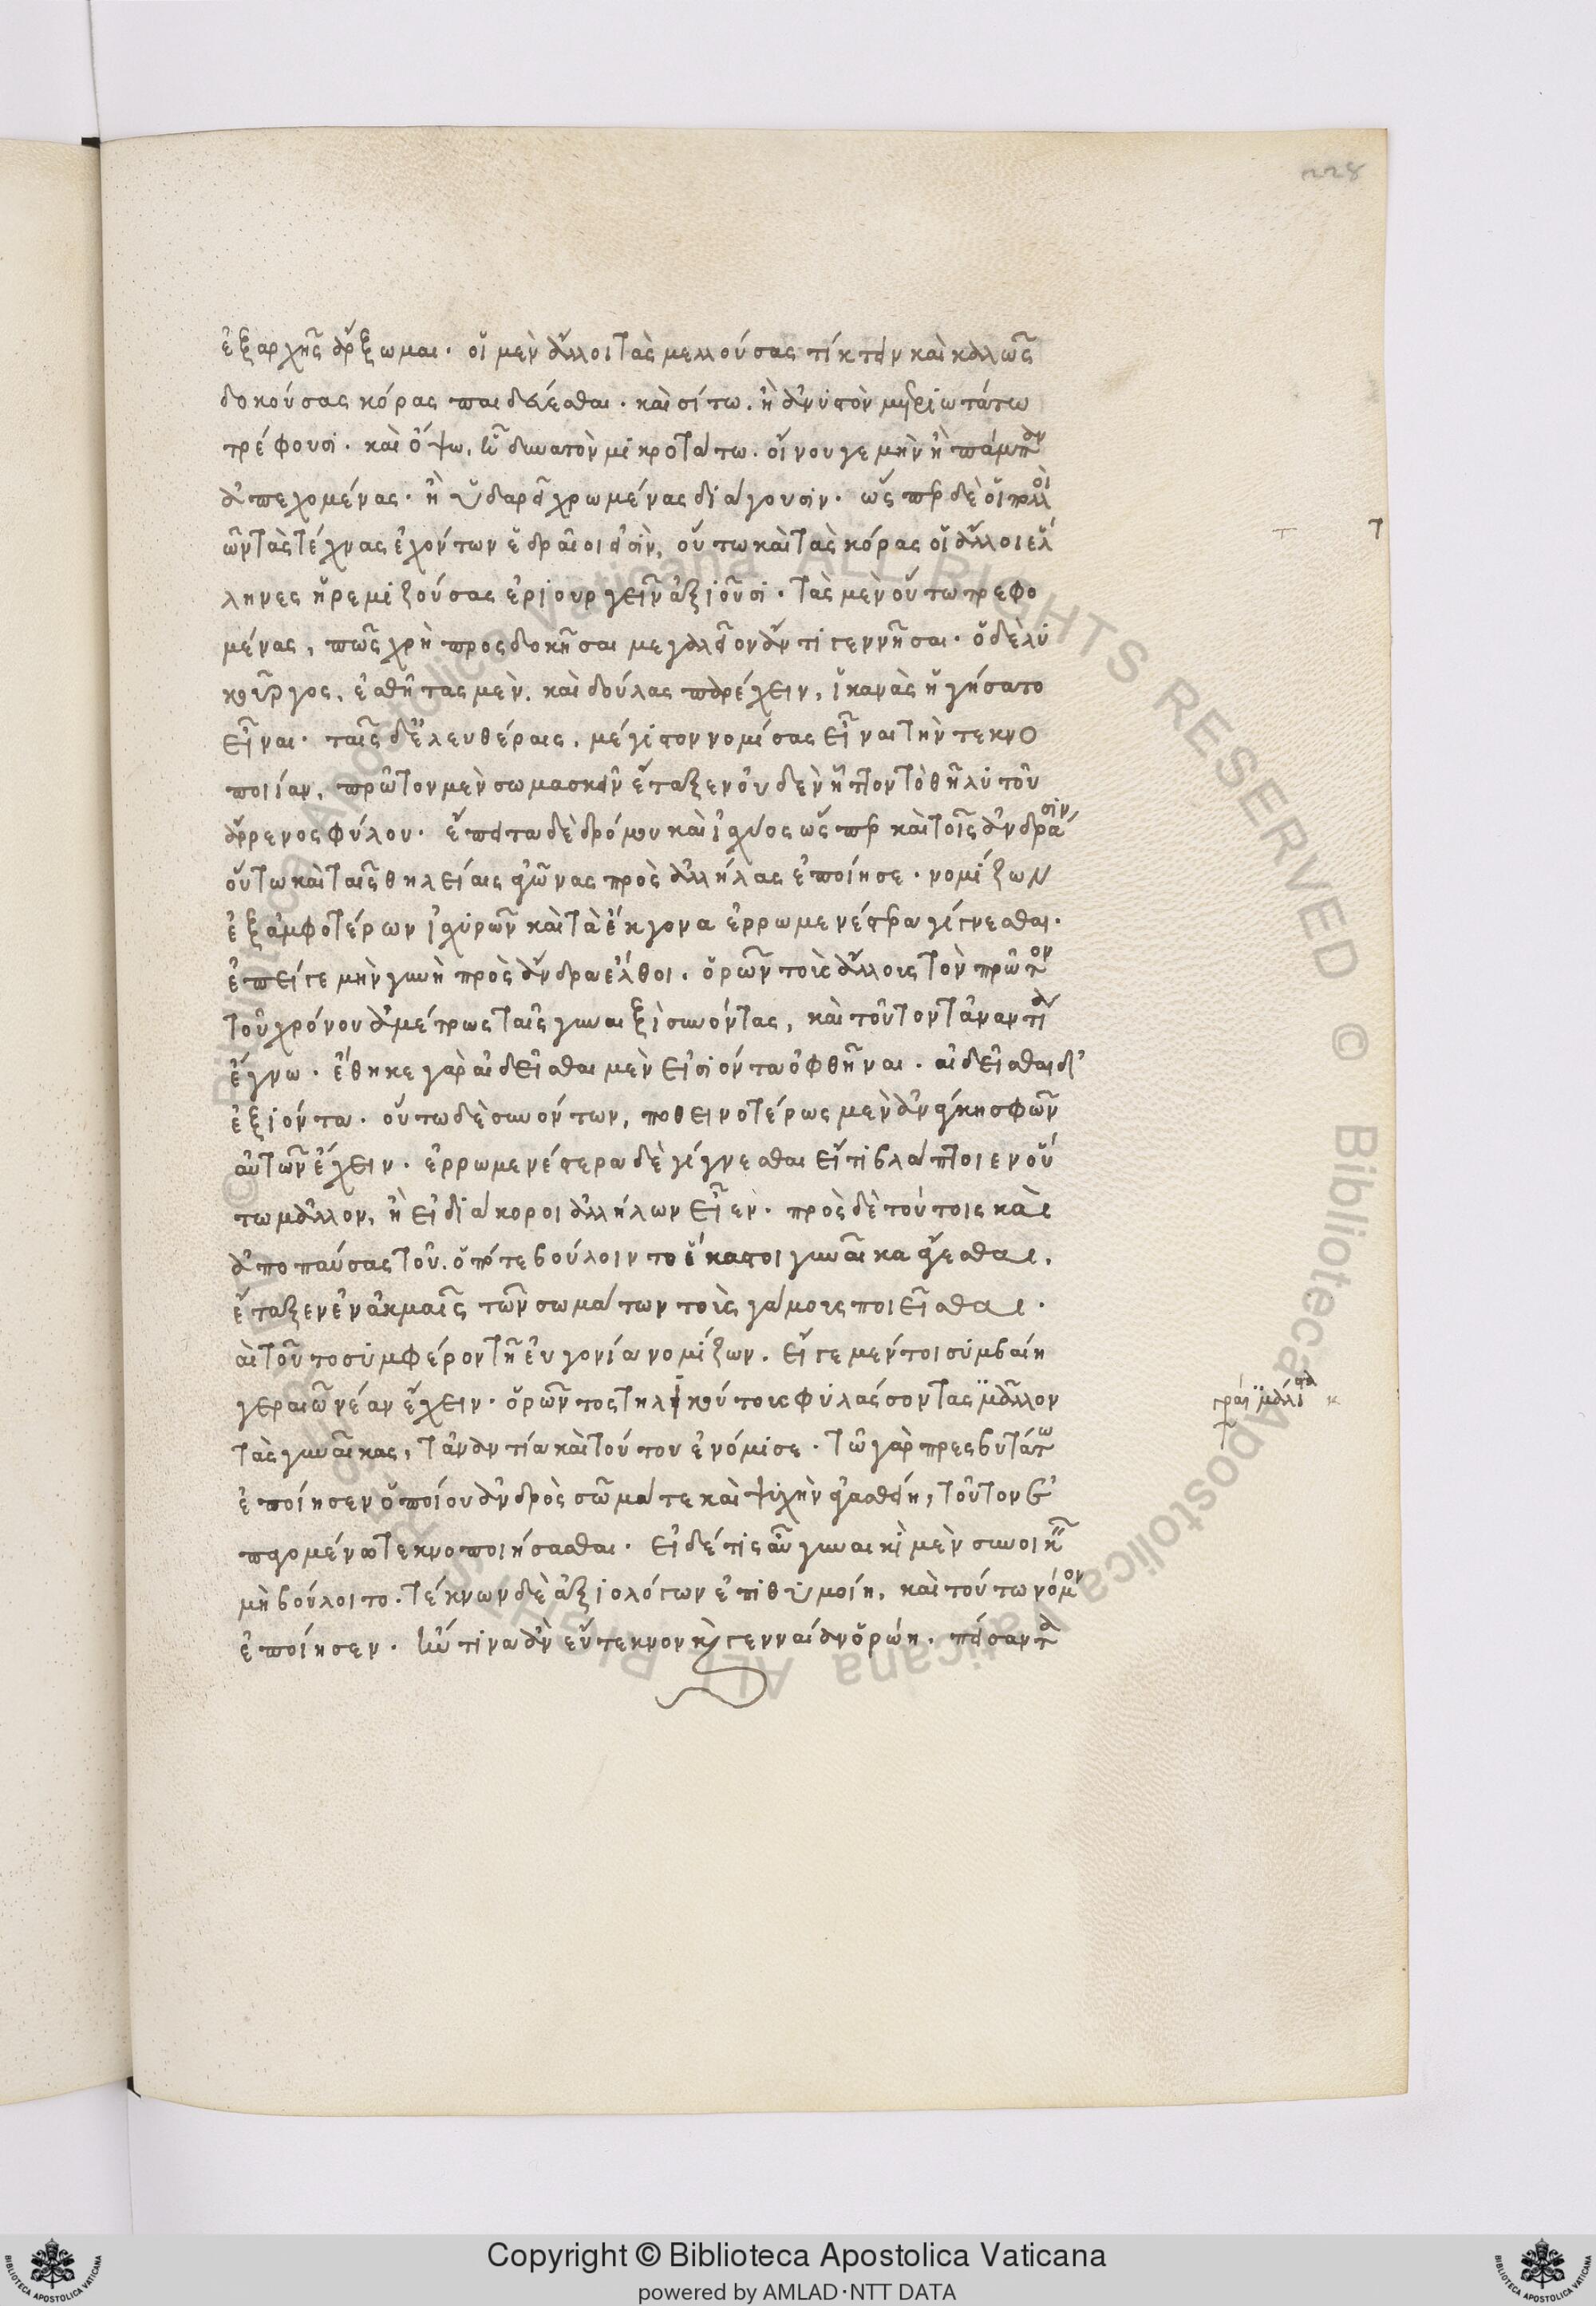 228
ἐξαρχῆς ἄρξωμαι· οἱ μὲν ἄλλοι τὰς μελλούσας τίκτειν καὶ καλῶς
δοκούσας κόρας παιδεύεσθαι· καὶ σίτω, ᾗ ἀνυστὸν μετριωτάτω
τρέφουσι· καὶ ὄψω, ᾗ δυνατὸν μικροτάτω· οἴνου γε μὴν ἢ πάμπαν
ἀπεχομένας· ἢ ὑδαρεῖ χρωμένας διάγουσιν· ὥσπερ δὲ οἱ πολλοὶ
τῶν τὰς τέχνας ἐχόντων ἑδραῖοι εἰσὶν, οὕτω καὶ τὰς κόρας οἱ ἄλλοι ἕλ
ληνες ἠρεμιζούσας ἐριουργεῖν ἀξιοῦσι· τὰς μὲν οὕτω τρεφο
μένας, πῶς χρὴ προσδοκῆσαι μεγαλεῖον ἄν τι γεννῆσαι· ὁ δὲ λυ
κοῦργος, ἐσθῆτας μὲν, καὶ δούλας παρέχειν, ἱκανὰς ἡγήσατο
εἶναι· ταῖς δ' ἐλευθέραις, μέγιστον νομίσας εἶναι τὴν τεκνο
ποιίαν, πρῶτον μὲν σωμασκεῖν ἔταξεν οὐδὲν ἧττον τὸ θῆλυ τοῦ
ἄρρενος φύλου· ἔπειτα δὲ δρόμου καὶ ἰσχύος ὥσπερ καὶ τοῖς ἀνδράσιν
οὕτω καὶ ταῖς θηλείαις ἀγῶνας πρὸς ἀλλήλας ἐποίησε· νομίζων
ἐξ ἀμφοτέρων ἰσχυρῶν καὶ τὰ ἔκγονα ἐρρωμενέστερα γίγνεσθαι·
ἐπεί γε μὴν γυνὴ πρὸς ἄνδρα ἔλθοι, ὁρῶν τοὺς ἄλλους τὸν πρῶτον
τοῦ χρόνου ἀμέτρως ταῖς γυναιξὶ συνόντας, καὶ τοῦτον τἀναντία
ἔγνω· ἔθηκε γὰρ αἰδεῖσθαι μὲν εἰσιόντα ὀφθῆναι· αἰδεῖσθαι δ'
ἐξιόντα· οὕτω δὲ συνόντων, ποθεινοτέρως μὲν ἀνάγκη σφῶν
αὐτῶν ἔχειν· ἐρρωμενέστερα δὲ γίγνεσθαι εἴ τι βλάπτοιεν οὕ
τω μᾶλλον, ἢ εἰ διάκοροι ἀλλήλων εἶεν· πρὸς δὲ τούτοις καὶ
ἀποπαύσας τοῦ, ὁπότε βούλοιντο ἕκαστοι γυναῖκα ἄγεσθαι,
ἔταξεν ἐν ἀκμαῖς τῶν σωμάτων τοὺς γάμους ποιεῖσθαι·
καὶ τοῦτο συμφέρον τῇ εὐγονία νομίζων· εἴ γε μέντοι συμβαίη
γεραιῶ νέαν ἔχειν· ὁρῶν τοὺς τηλικούτους φυλάσσοντας μᾶλλον
τὰς γυναῖκας, τἀναντία καὶ τούτου ἐνόμισε· τῶ γὰρ πρεσβυτάτω
ἐποίησεν ὁποίου ἀνδρὸς σῶμά τε καὶ ψυχὴν ἀγασθείη, τοῦτον ἐ
παγομένω τεκνοποιήσασθαι· εἰ δέ τις αὖ γυναικὶ μὲν συνοικεῖν
μὴ βούλοιτο· τέκνων δὲ ἀξιολόγων ἐπιθυμοίη, καὶ τούτω νόμον
ἐποίησεν· ἥντινα ἂν εὔτεκνον καὶ γενναίαν ὁρώη· πείσαντα